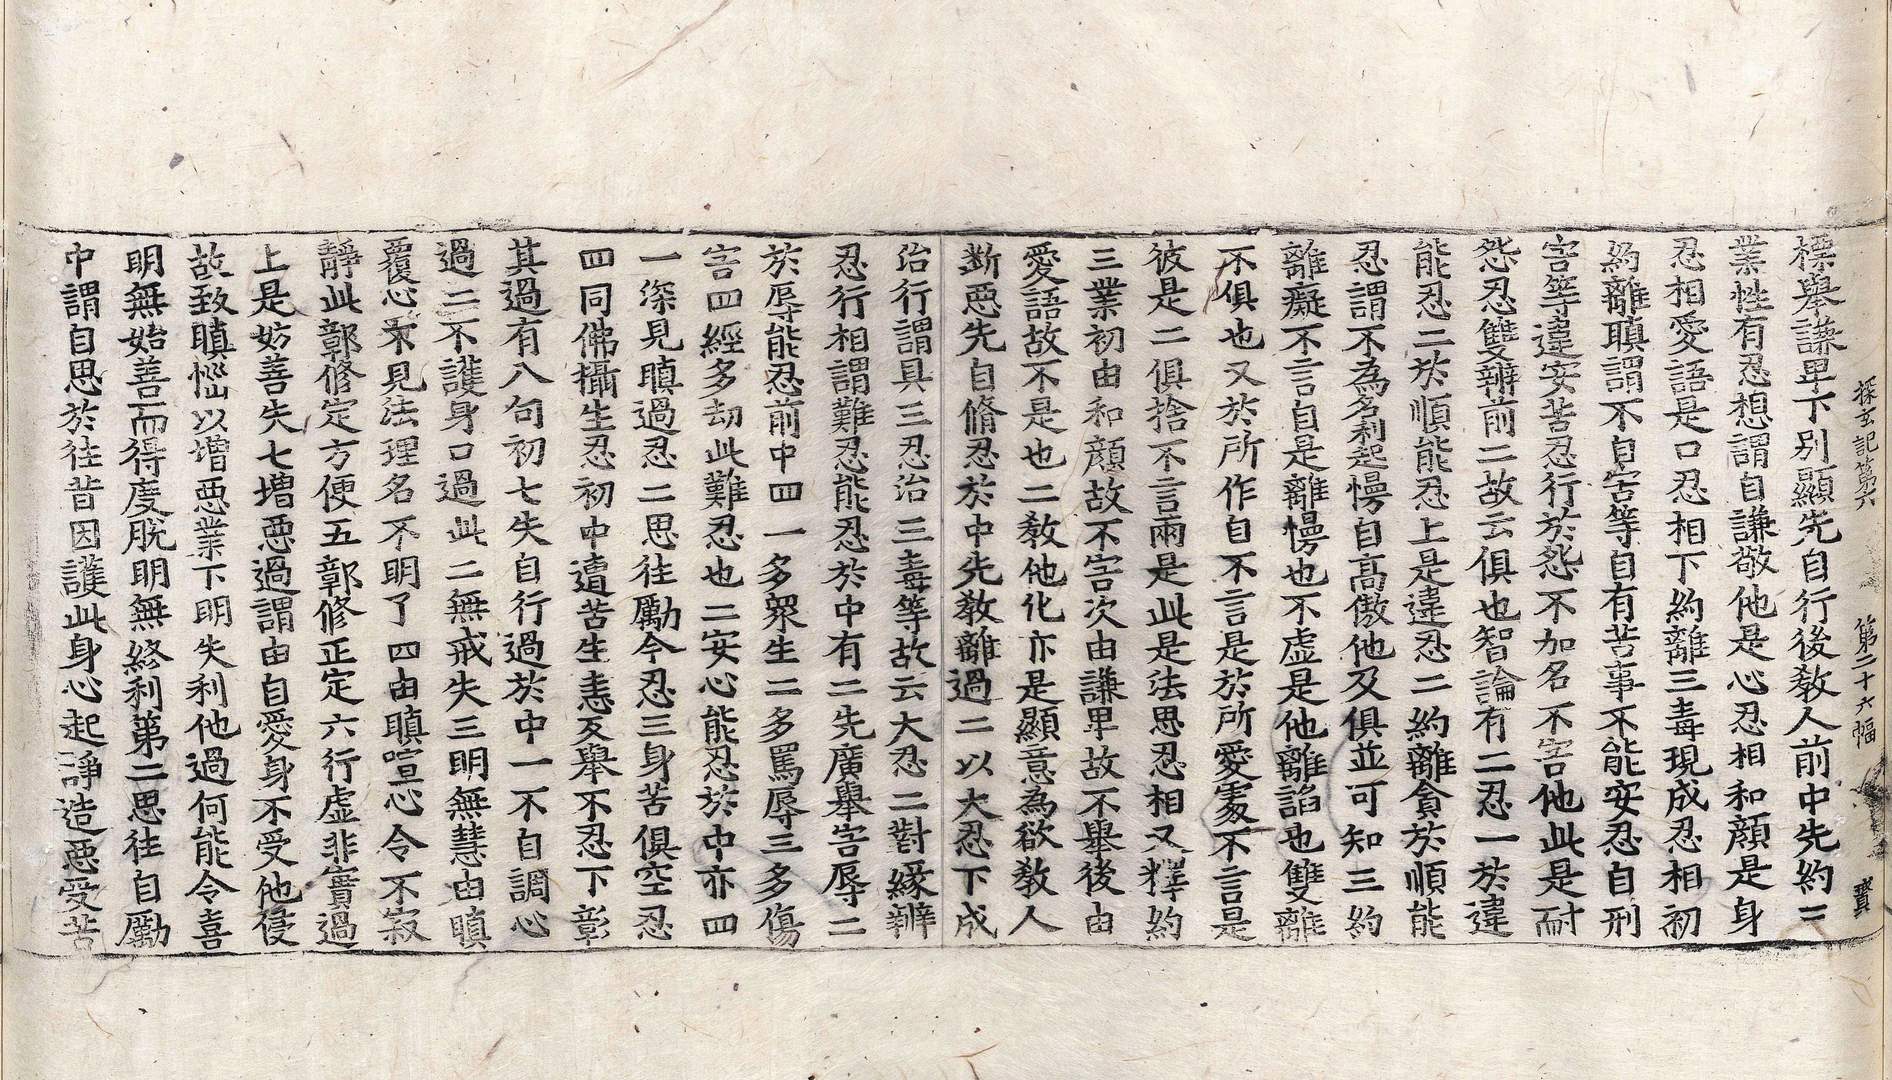 探玄記第六　第二十六幅　寶
標舉謙卑下別顯先自行後教人前中先約二
業性有忍想謂自謙敬他是心忍相和顔是身
忍相愛語是口忍相下約離三毒現成忍相初
約離瞋謂不自害等自有苦事不能安忍自刑
害等違安苦忍行於怨不加名不害他此是耐
怨忍雙辨前二故云俱也智論有二忍一於違
能忍二於順能忍上是違忍二約離貪於順能
忍謂不為名利起慢自高傲他及俱並可知三約
離癡不言自是離慢也不虛是他離諂也雙離
不俱也又於所作自不言是於所愛處不言是
彼是二俱捨不言兩是此是法思忍相又釋約
三業初由和顔故不害次由謙卑故不舉後由
愛語故不是也二教他化亦是顯意為欲教人
斷惡先自脩忍於中先教離過二以大忍下成
治行謂具三忍治三毒等故云大忍二對緣辨
忍行相謂難忍能忍於中有二先廣舉害辱二
於辱能忍前中四一多衆生二多罵辱三多傷
害四經多劫此難忍也二安心能忍於中亦四
一深見瞋過忍二思往勵今忍三身苦俱空忍
四同佛攝生忍初中遭苦生恚反舉不忍下彰
其過有八句初七失自行過於中一不自調心
過二不護身口過此二無戒失三明無慧由瞋
覆心不見法理名不明了四由瞋喧心令不寂
靜此鄣修定方便五鄣修正定六行虛非實過
上是妨善失七增惡過謂由自愛身不受他侵
故致瞋惱以增惡業下明失利他過何能令喜
明無始善而得度脫明無終利第二思往自勵
中謂自思於往昔因護此身心起諍造惡受苦